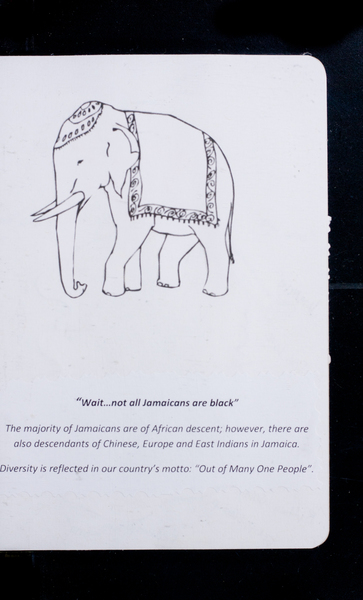 "Wait...not all Jamaicans are black"
The majority of Jamaicans are of African descent; however, there are
also descendants of Chinese, Europe and East Indians in Jamaica.
Diversity is reflected in our country's motto: "Out of Many One People".